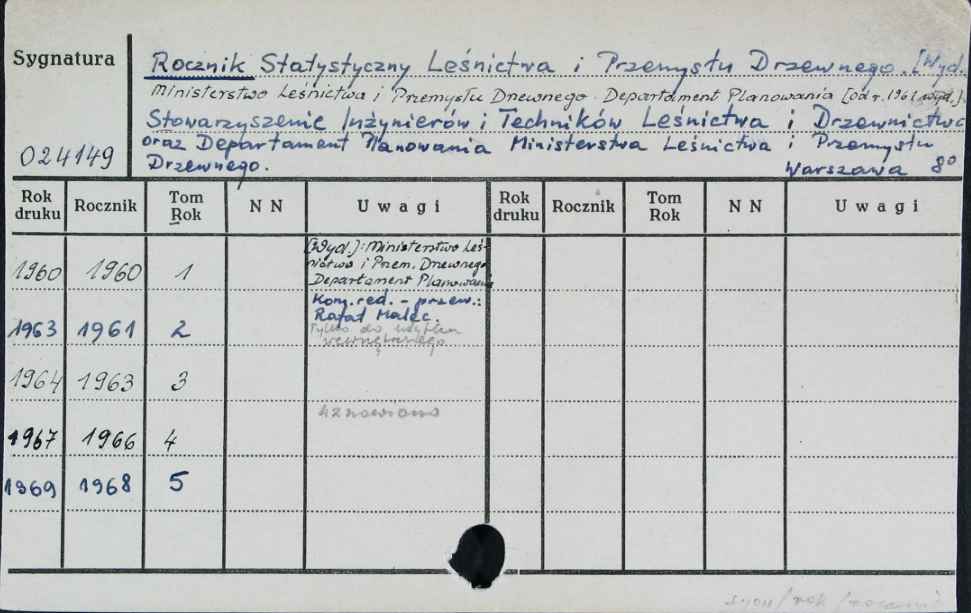 Sygnatura
Rocznik Statystyczny Leśnictwa i Przemysłu Drzewnego. [Wyd.
Ministerstwo Leśnictwa i Przemysłu Drzewnego. Departament Planowania [od r. 1961 wyd.]:
Stowarzyszenie Inżynierów i Techników Leśnictwa i Drzewnictwa
024149
oraz Departament Planowania Ministerstwa Leśnictwa i Przemysłu
Drzewnego. Warszawa 8°
Rok druku Rocznik Tom Rok NN Uwagi Rok druku Rocznik Tom Rok NN Uwagi
[Wyd.]: Ministerstwo Leś-
nictwa i Przem. Drzewnego
1960 1960 1
Departament Planowania
Kom. red. - przew.:
Rafał Malec.
1963 1961 2
Tylko do użytku
wewnętrznego
1964 1963 3
wznowiono
1967 1966 4
1969 1968 5
/ rok /